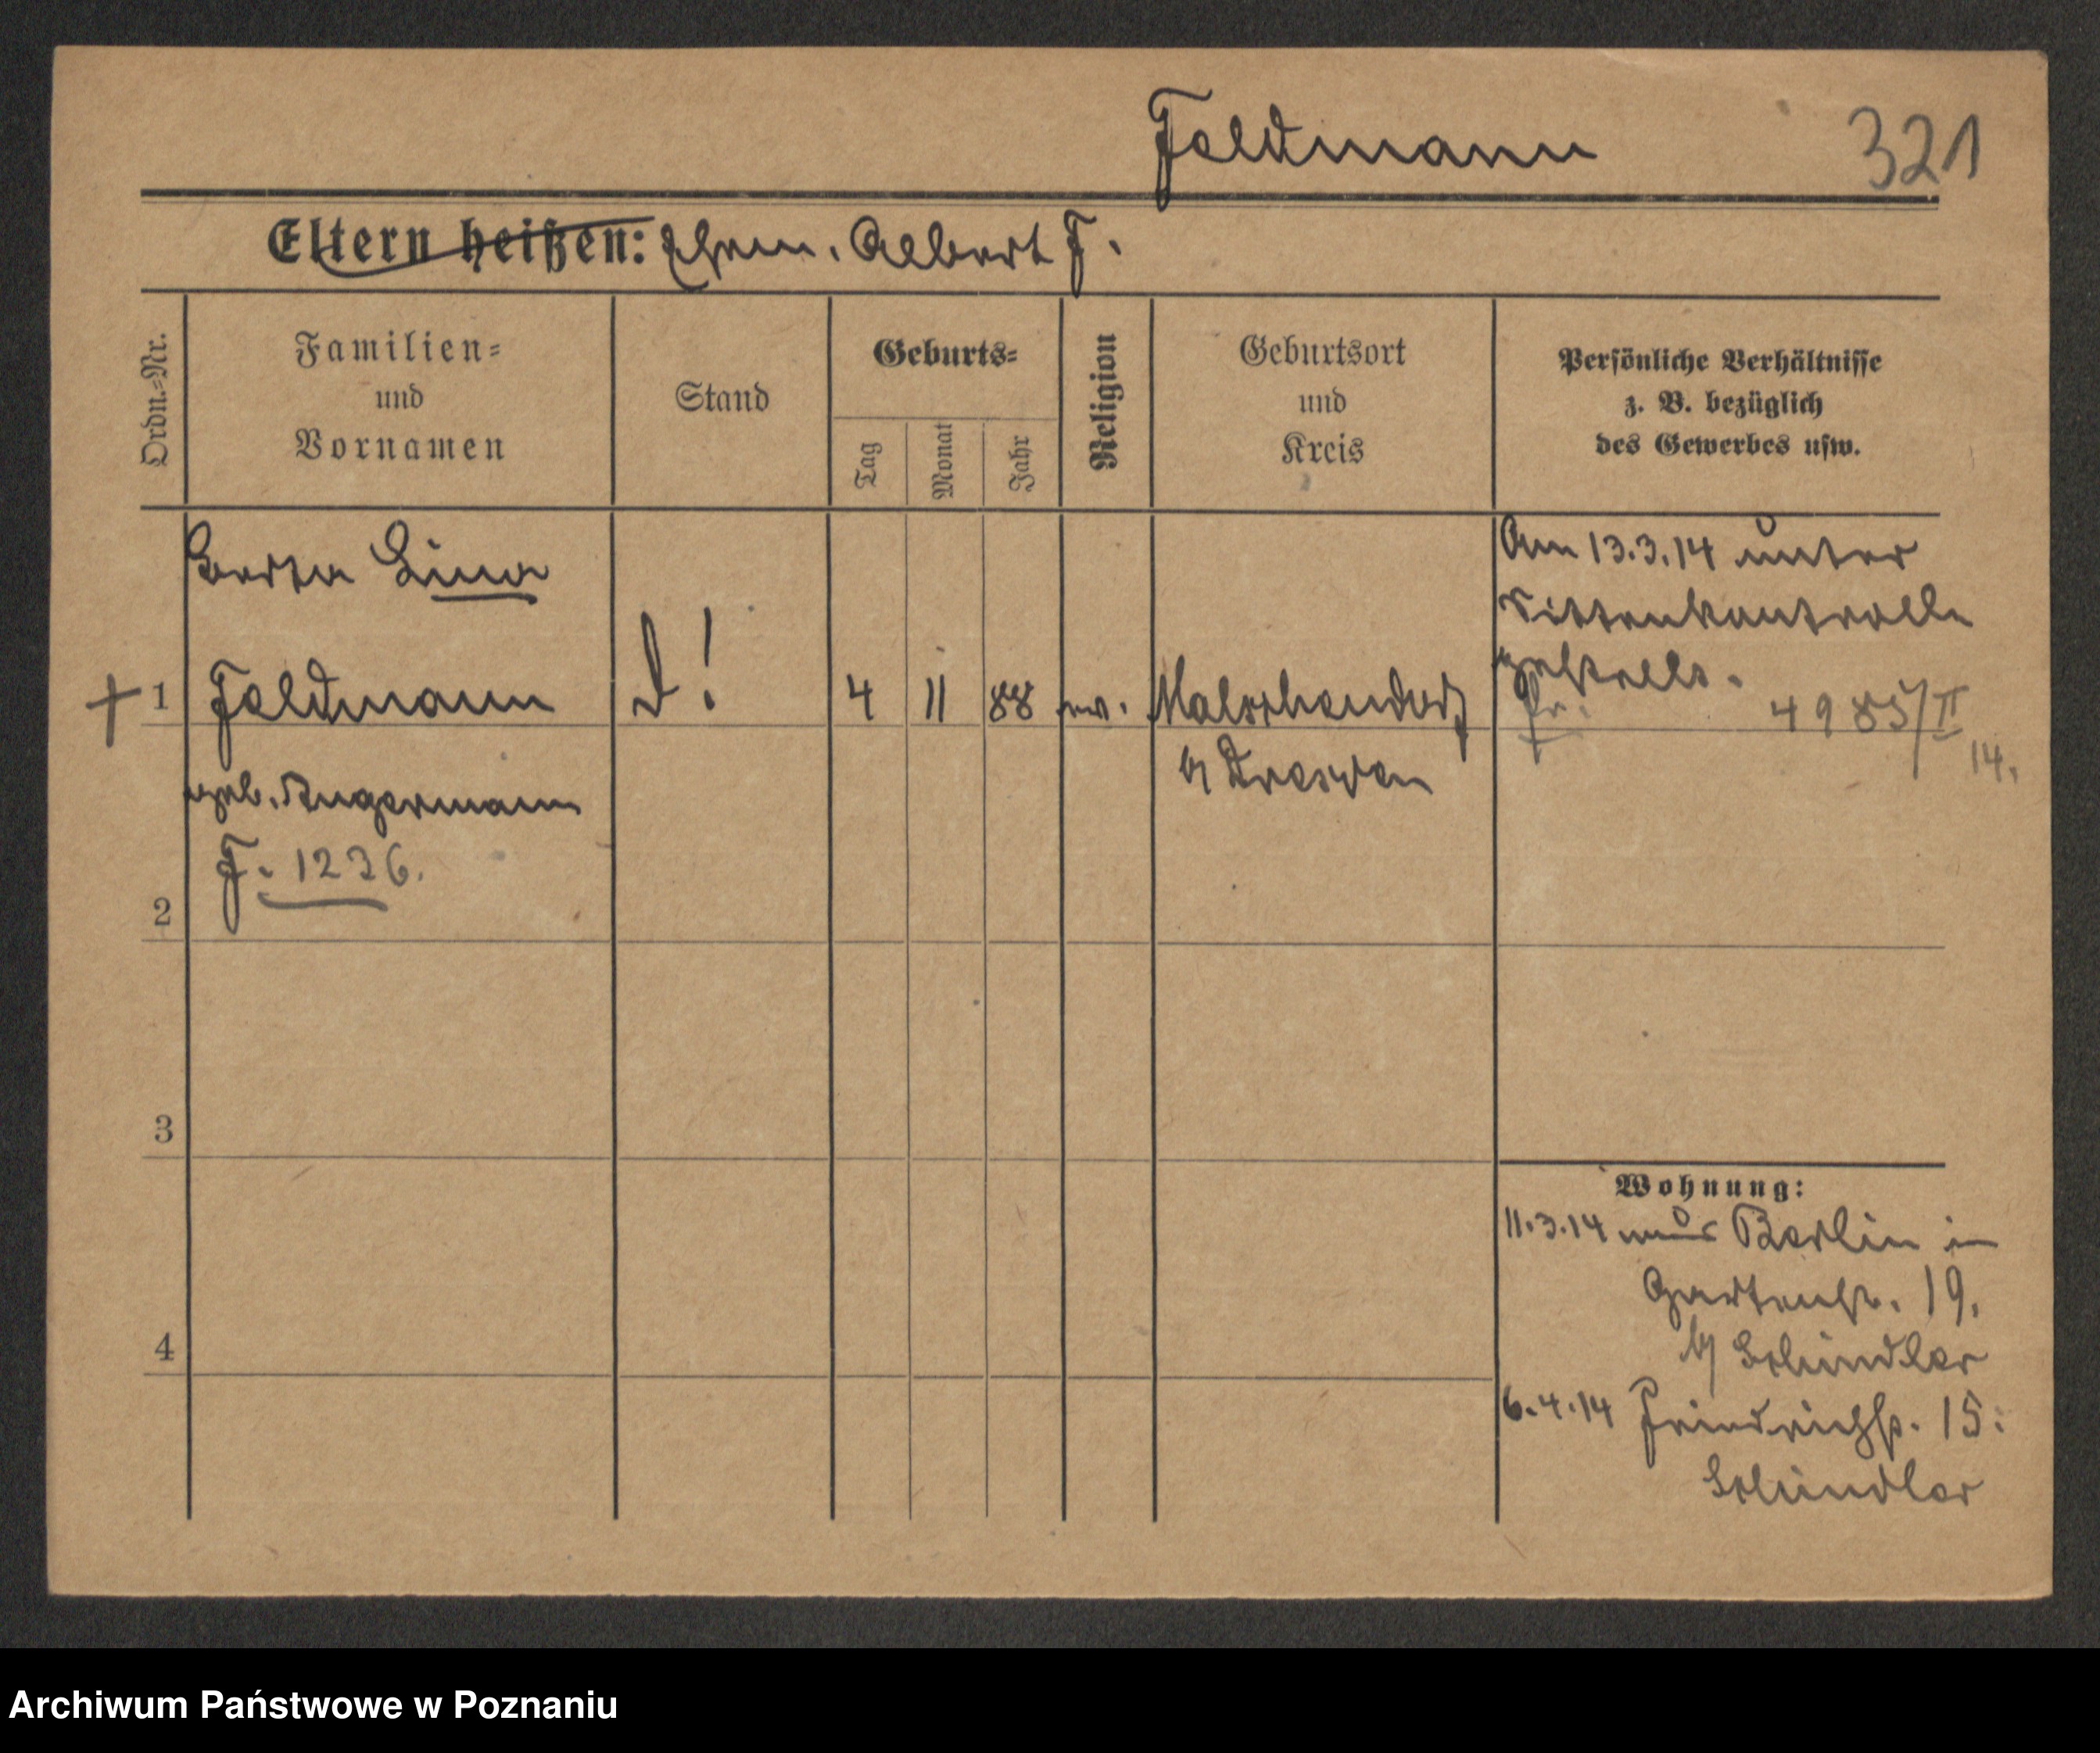 Feldmann
321
Eltern heißen: Ehem. Albert F.
Ordn.-Nr.
Familien-
und
Vornamen
Stand
Geburts-
Tag
Monat
Jahr
Religion
Geburtsort
und
Kreis
Persönliche Verhältnisse
z. B. bezüglich
des Gewerbes usw.
Berta Lina
† 1 Feldmann
geb. Angermann
F. 1236.
4 11 88 ev.
b/ Dresden
Am 13.3.14 unter
Sittenkontrolle
gestellt.
4985/II
14.
2
3
4
Wohnung:
11.3.14 aus Berlin in
Gartenstr. 19.
b/ Schindler
6.4.14 Friedrichstr. 15:
Schindler
Archiwum Państwowe w Poznaniu